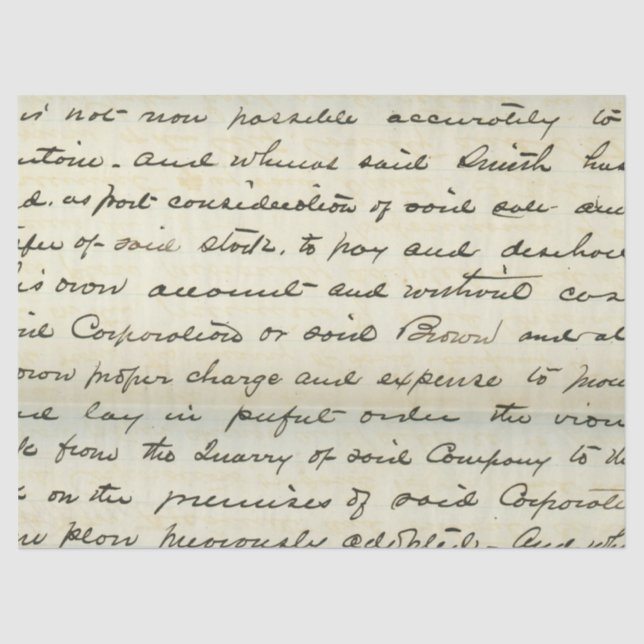 is not now possible accurately to
tain - and whereas said Smith has
d. as part consideration of said sale and
fer of said stock, to pay and discharge
his own account and without cos
Corporation or said Brown and at
own proper charge and expense to
and lay in perfect order the iron
from the Quarry of said Company to the
on the premises of said Corporati
plan previously adopted - And wh